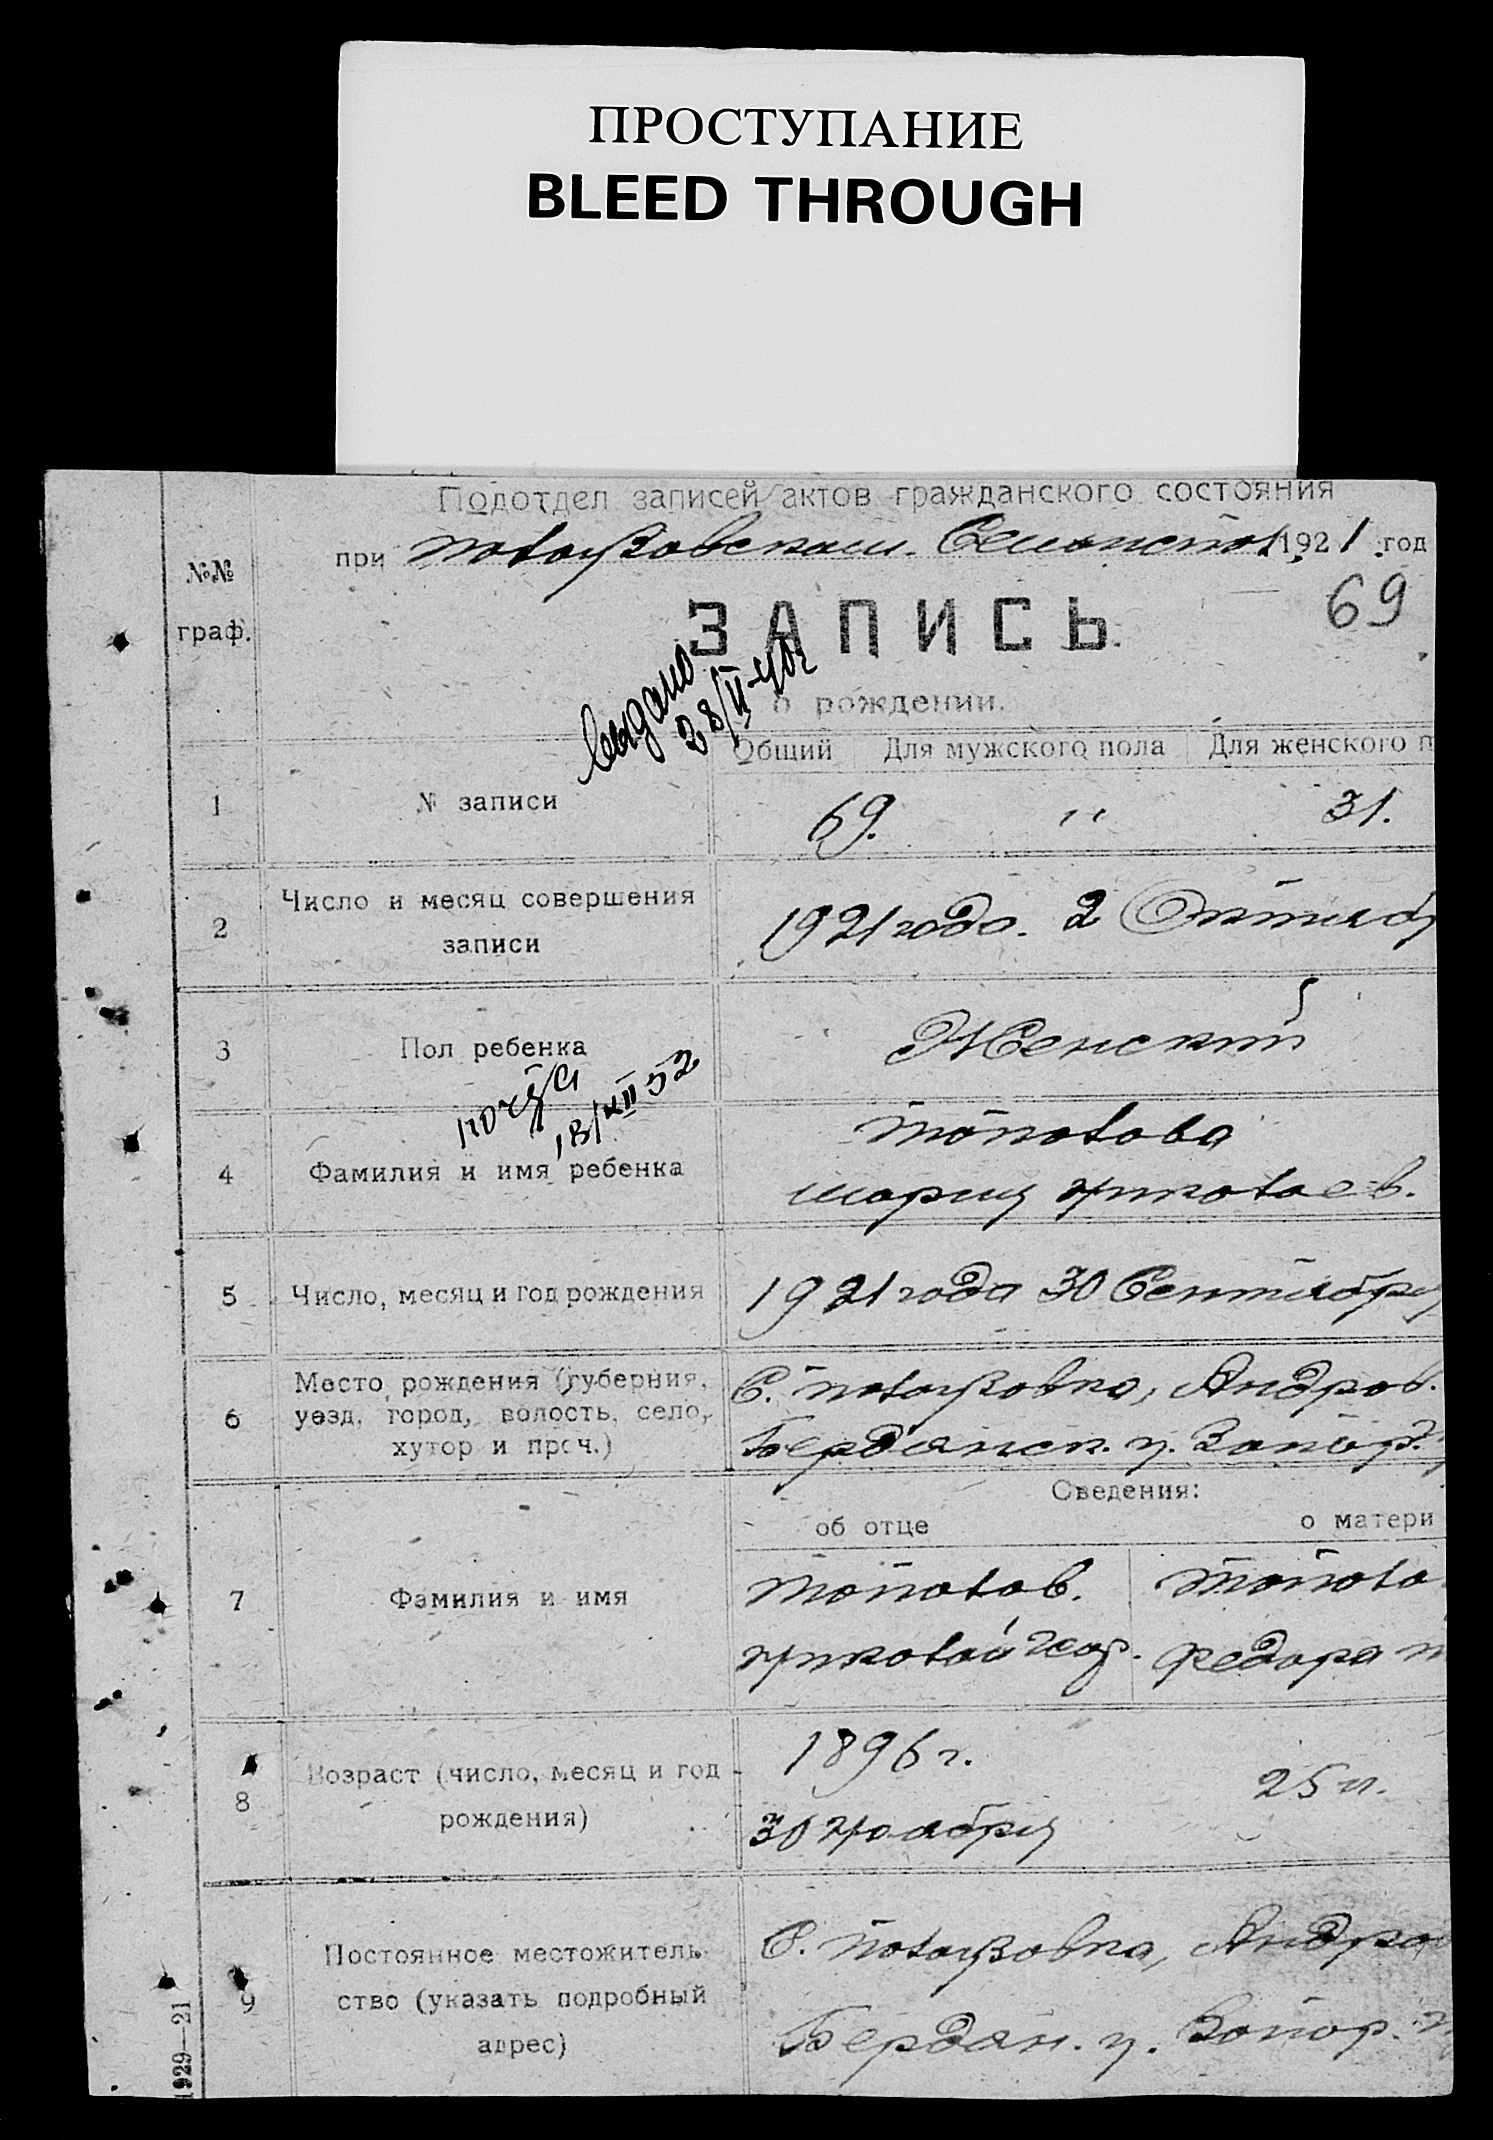 ПРОСТУПАНИЕ
BLEED THROUGH
Подотдел записей актов гражданского состояния
при Полоузовском 1921 год
№№
граф.
69
ЗАПИСЬ
о рождении.
выдано
28/II-40г
Общий Для мужского пола Для женского п
1 № записи 69. " 31.
2 Число и месяц совершения
записи
1921 года. 2 Октяб
3 Пол ребенка Женский
18/XII 52
4 Фамилия и имя ребенка
Тополова
Мария Николаев.
5 Число, месяц и год рождения 1921 года 30 Сентября
6 Место рождения (губерния,
уезд, город, волость, село,
хутор и проч.)
С. Полоузовка, Андров.
Бердянск. у. Запор.
Сведения:
об отце о матери
7 Фамилия и имя
Тополов. Тополо
Николай Федора
8 Возраст (число, месяц и год
рождения)
1896 г. 25 л.
30 Ноября
9 Постоянное местожитель-
ство (указать подробный
адрес)
С. Полоузовка, Андро
Бердян. у. Запор.
1929—21